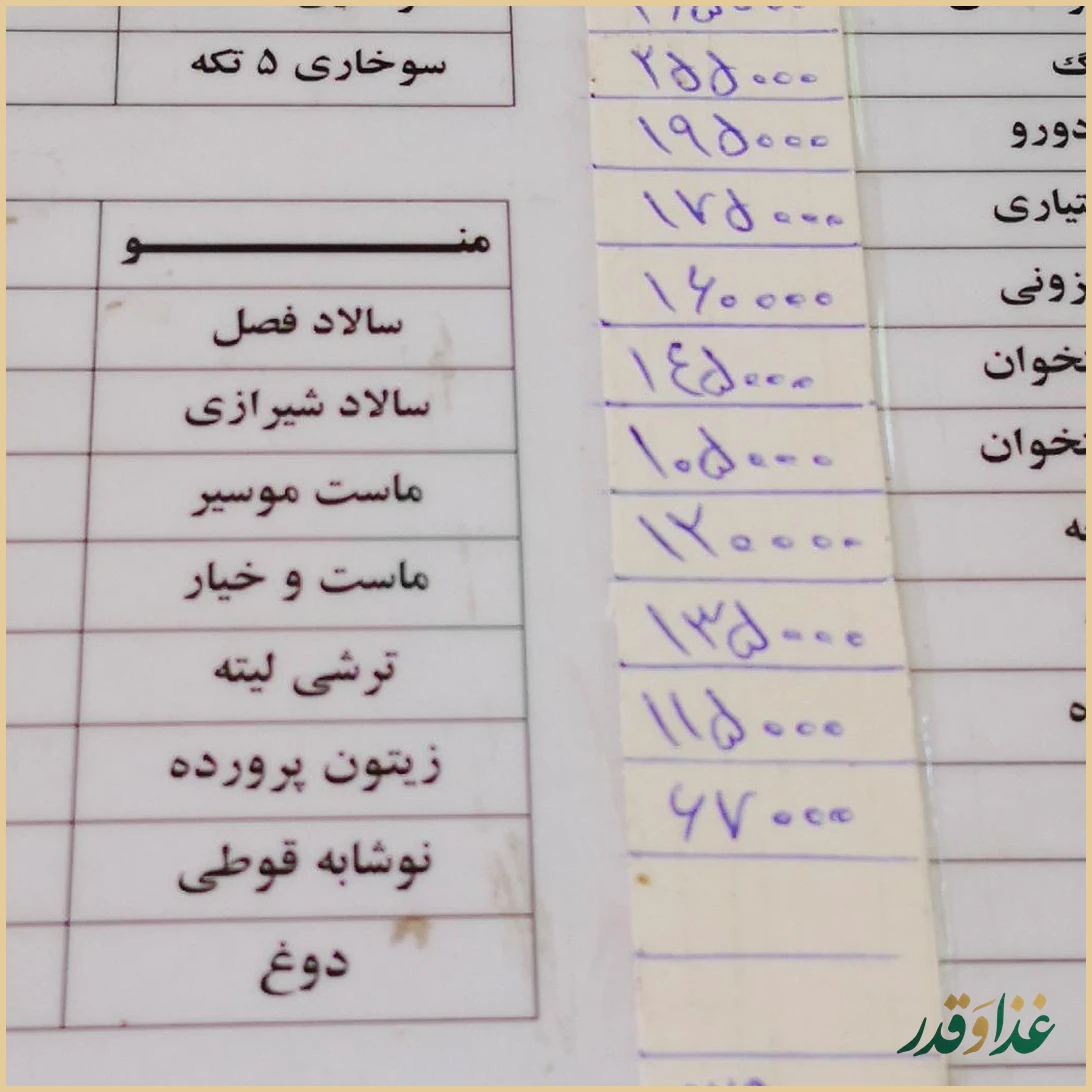 سوخاری ۵ تکه
منو
سالاد فصل
سالاد شیرازی
ماست موسیر
ماست و خیار
ترشی لیته
زیتون پرورده
نوشابه قوطی
دوغ
۲۵۵۰۰۰
۱۹۵۰۰۰
۱۷۵۰۰۰
۱۶۰۰۰۰
۱۴۵۰۰۰
۱۰۵۰۰۰
۱۲۰۰۰۰
۱۳۵۰۰۰
۱۱۵۰۰۰
۶۷۰۰۰
دورو
غذا و قدر